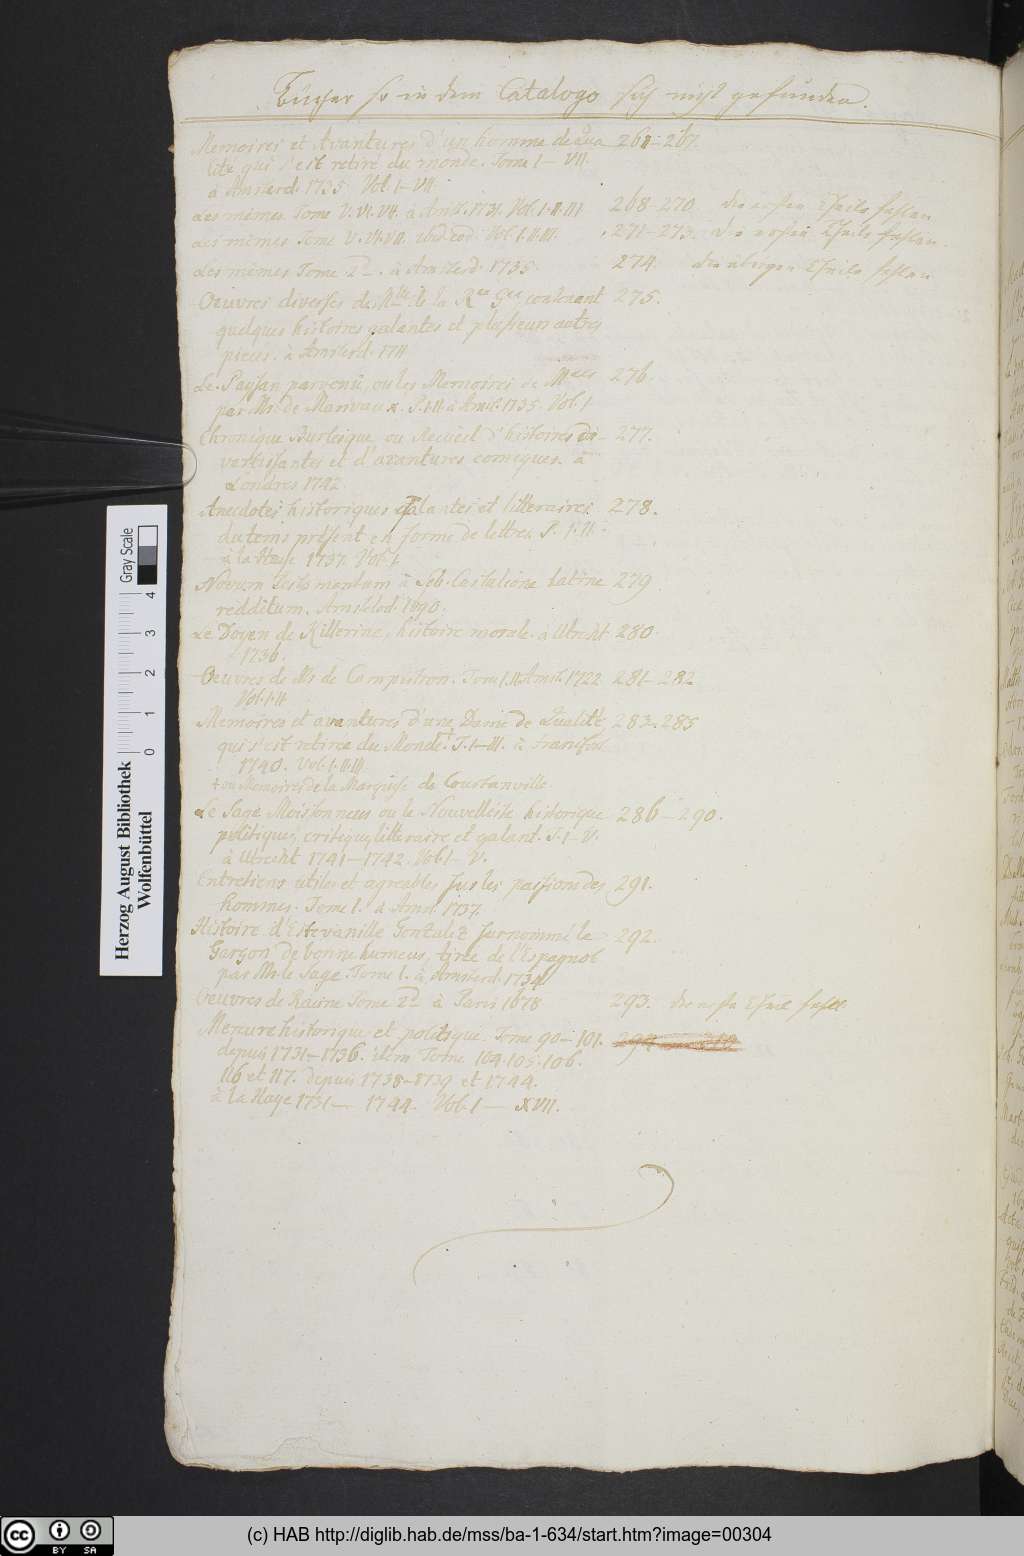 Bücher so in dem Catalogo sich nicht gefunden.
Memoires et Avantures d'un homme de Qua- 261-267.
lité qui s'est retiré du monde. Tome I - VII.
à Amsterd. 1735. Vol. I-VII.
Les mêmes Tome V. VI. VII. à Amst. 1731. Vol. I. II. III 268-270. die ersten Theile fehlen
Les mêmes Tome V. VI. VII. ibid. eod. Vol. I. II. III. 271-273. die ersten Theile fehlen.
Les mêmes Tome 2d. à Amsterd. 1735. 274. die übrigen Theile fehlen
Oeuvres diverses de contenant 275.
quelques histoires galantes et plusieurs autres
pieces. à Amsterd. 1711
Le Paysan parvenû, ou les Memoires de M*** 276.
par Mr. de Marivaux. P. I. II. à Amst. 1735. Vol. I
Chronique Burlesque ou Recueil d'histoires di- 277.
vertissantes et d'avantures comiques. à
Londres 1742
Anecdotes historiques Galantes et litteraires 278.
du tems présent en forme de lettres. P. I. II.
à la Haye 1737. Vol. I.
Novum Testamentum à Seb. Castalione Latine 279
redditum. Amstelod.
Le Doyen de Killerine, histoire morale. à Utrecht 280.
1736.
Oeuvres de Mr. de Campistron. Tom I. II. Amst. 1722 281-282
Vol. I. II
Memoires et avantures d'une Dame de Qualité 283-285
qui s'est retirée du Monde.† T. I-III. à
1740. Vol. I. II. III.
† ou Memoires de la Marquise de Courtanville
Le Sage Moissonneur ou le Nouvelliste historique 286-290.
politique, critique, litteraire et galant. T. I-V.
à Utrecht 1741-1742. Vol. I-V.
Entretiens utiles et agreables sur les passions des 291.
hommes. Tome I. à Amst. 1737.
Histoire d'Estevanille Gonzalez surnommé le 292.
Garçon de bonne humeur, tirée de l'Espagnol
par Mr. le Sage. Tome I. à Amsterd. 1734
Oeuvres de Racine Tome 2d à Paris 1678 293. der erste Theil fehlt
Mercure historique et politique. Tome 90-101.
depuis 1731-1736. item Tome 104. 105. 106.
116 et 117. depuis 1738-1739 et 1744.
à la Haye 1731- 1744. Vol. I - XVII.
Herzog August Bibliothek
Wolfenbüttel
Gray Scale
0 1 2 3 4
cc BY SA
(c) HAB http://diglib.hab.de/mss/ba-1-634/start.htm?image=00304